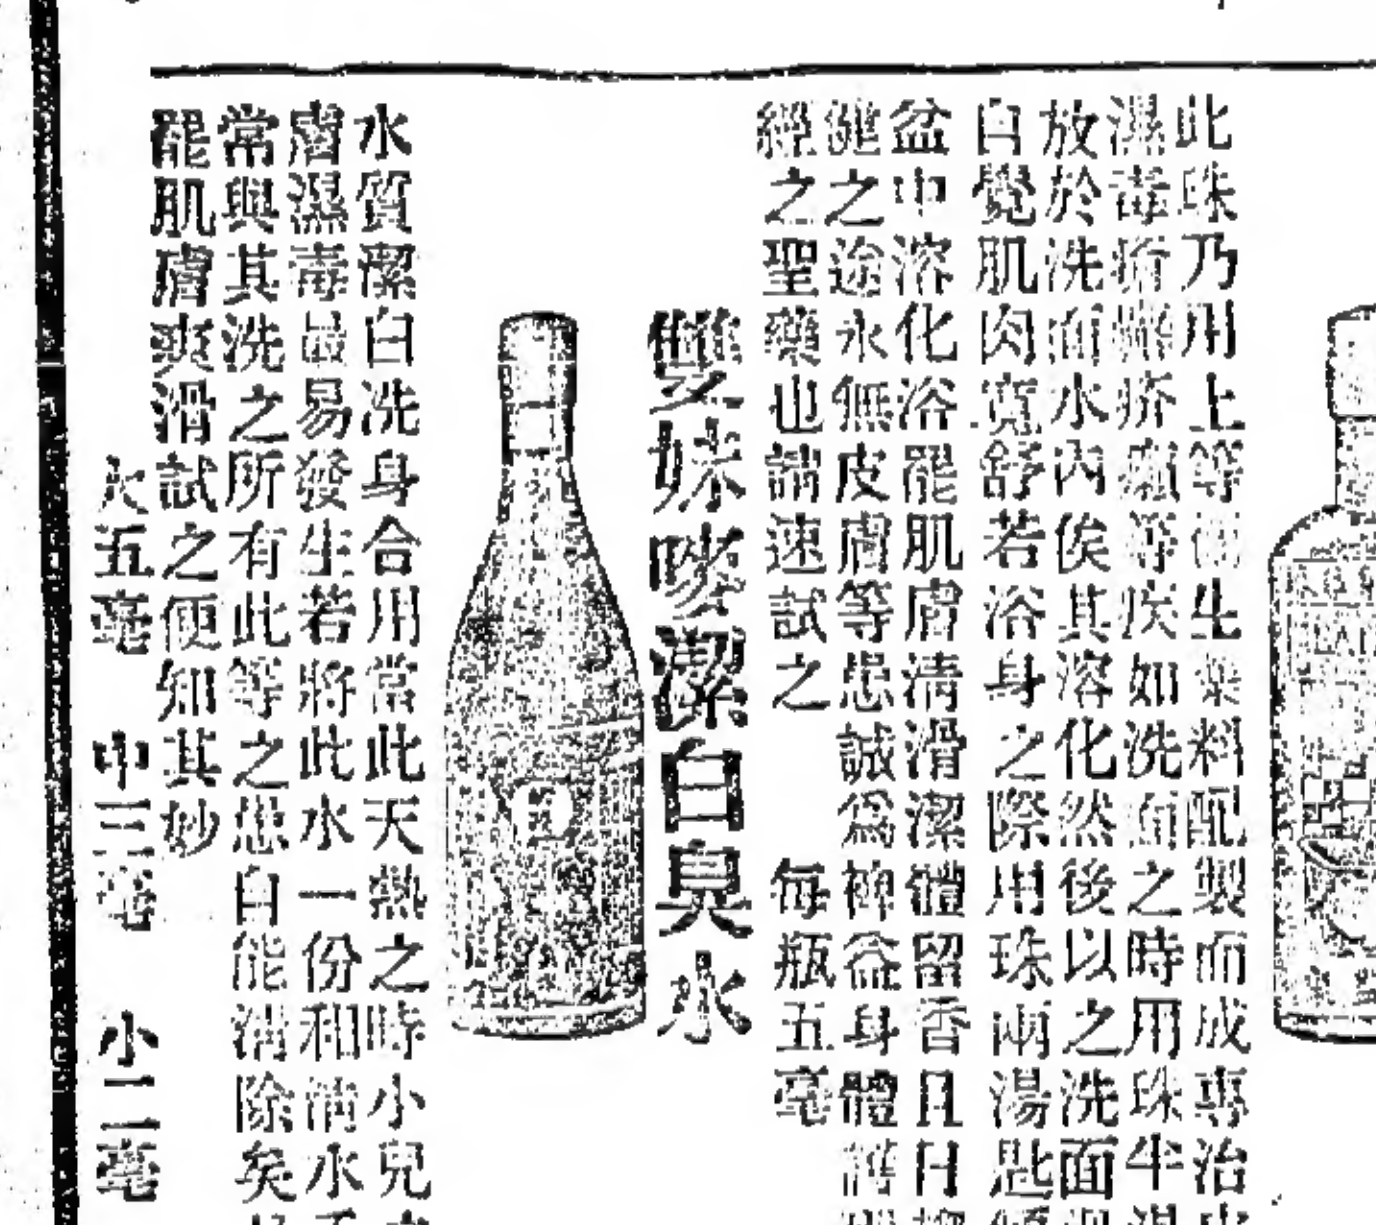 此珠乃用上等衛生藥料配製而成專治
濕毒疥癩等疾如洗面之時用珠半湯
放於洗面水內俟其溶化然後以之洗面
自覺肌肉寬舒若浴身之際用珠兩湯匙
盆中溶化浴罷肌膚清滑潔體留香且日
健之途永無皮膚等患誠為裨益身體
經之聖藥也請速試之 每瓶五毫
雙妹嘜潔白臭水
水質潔白洗身合用當此天熱之時小兒
膚濕毒最易發生若將此水一份和清水
常與其洗之所有此等之患自能清除矣
罷肌膚爽滑試之便知其妙
大五毫 中三毫 小二毫